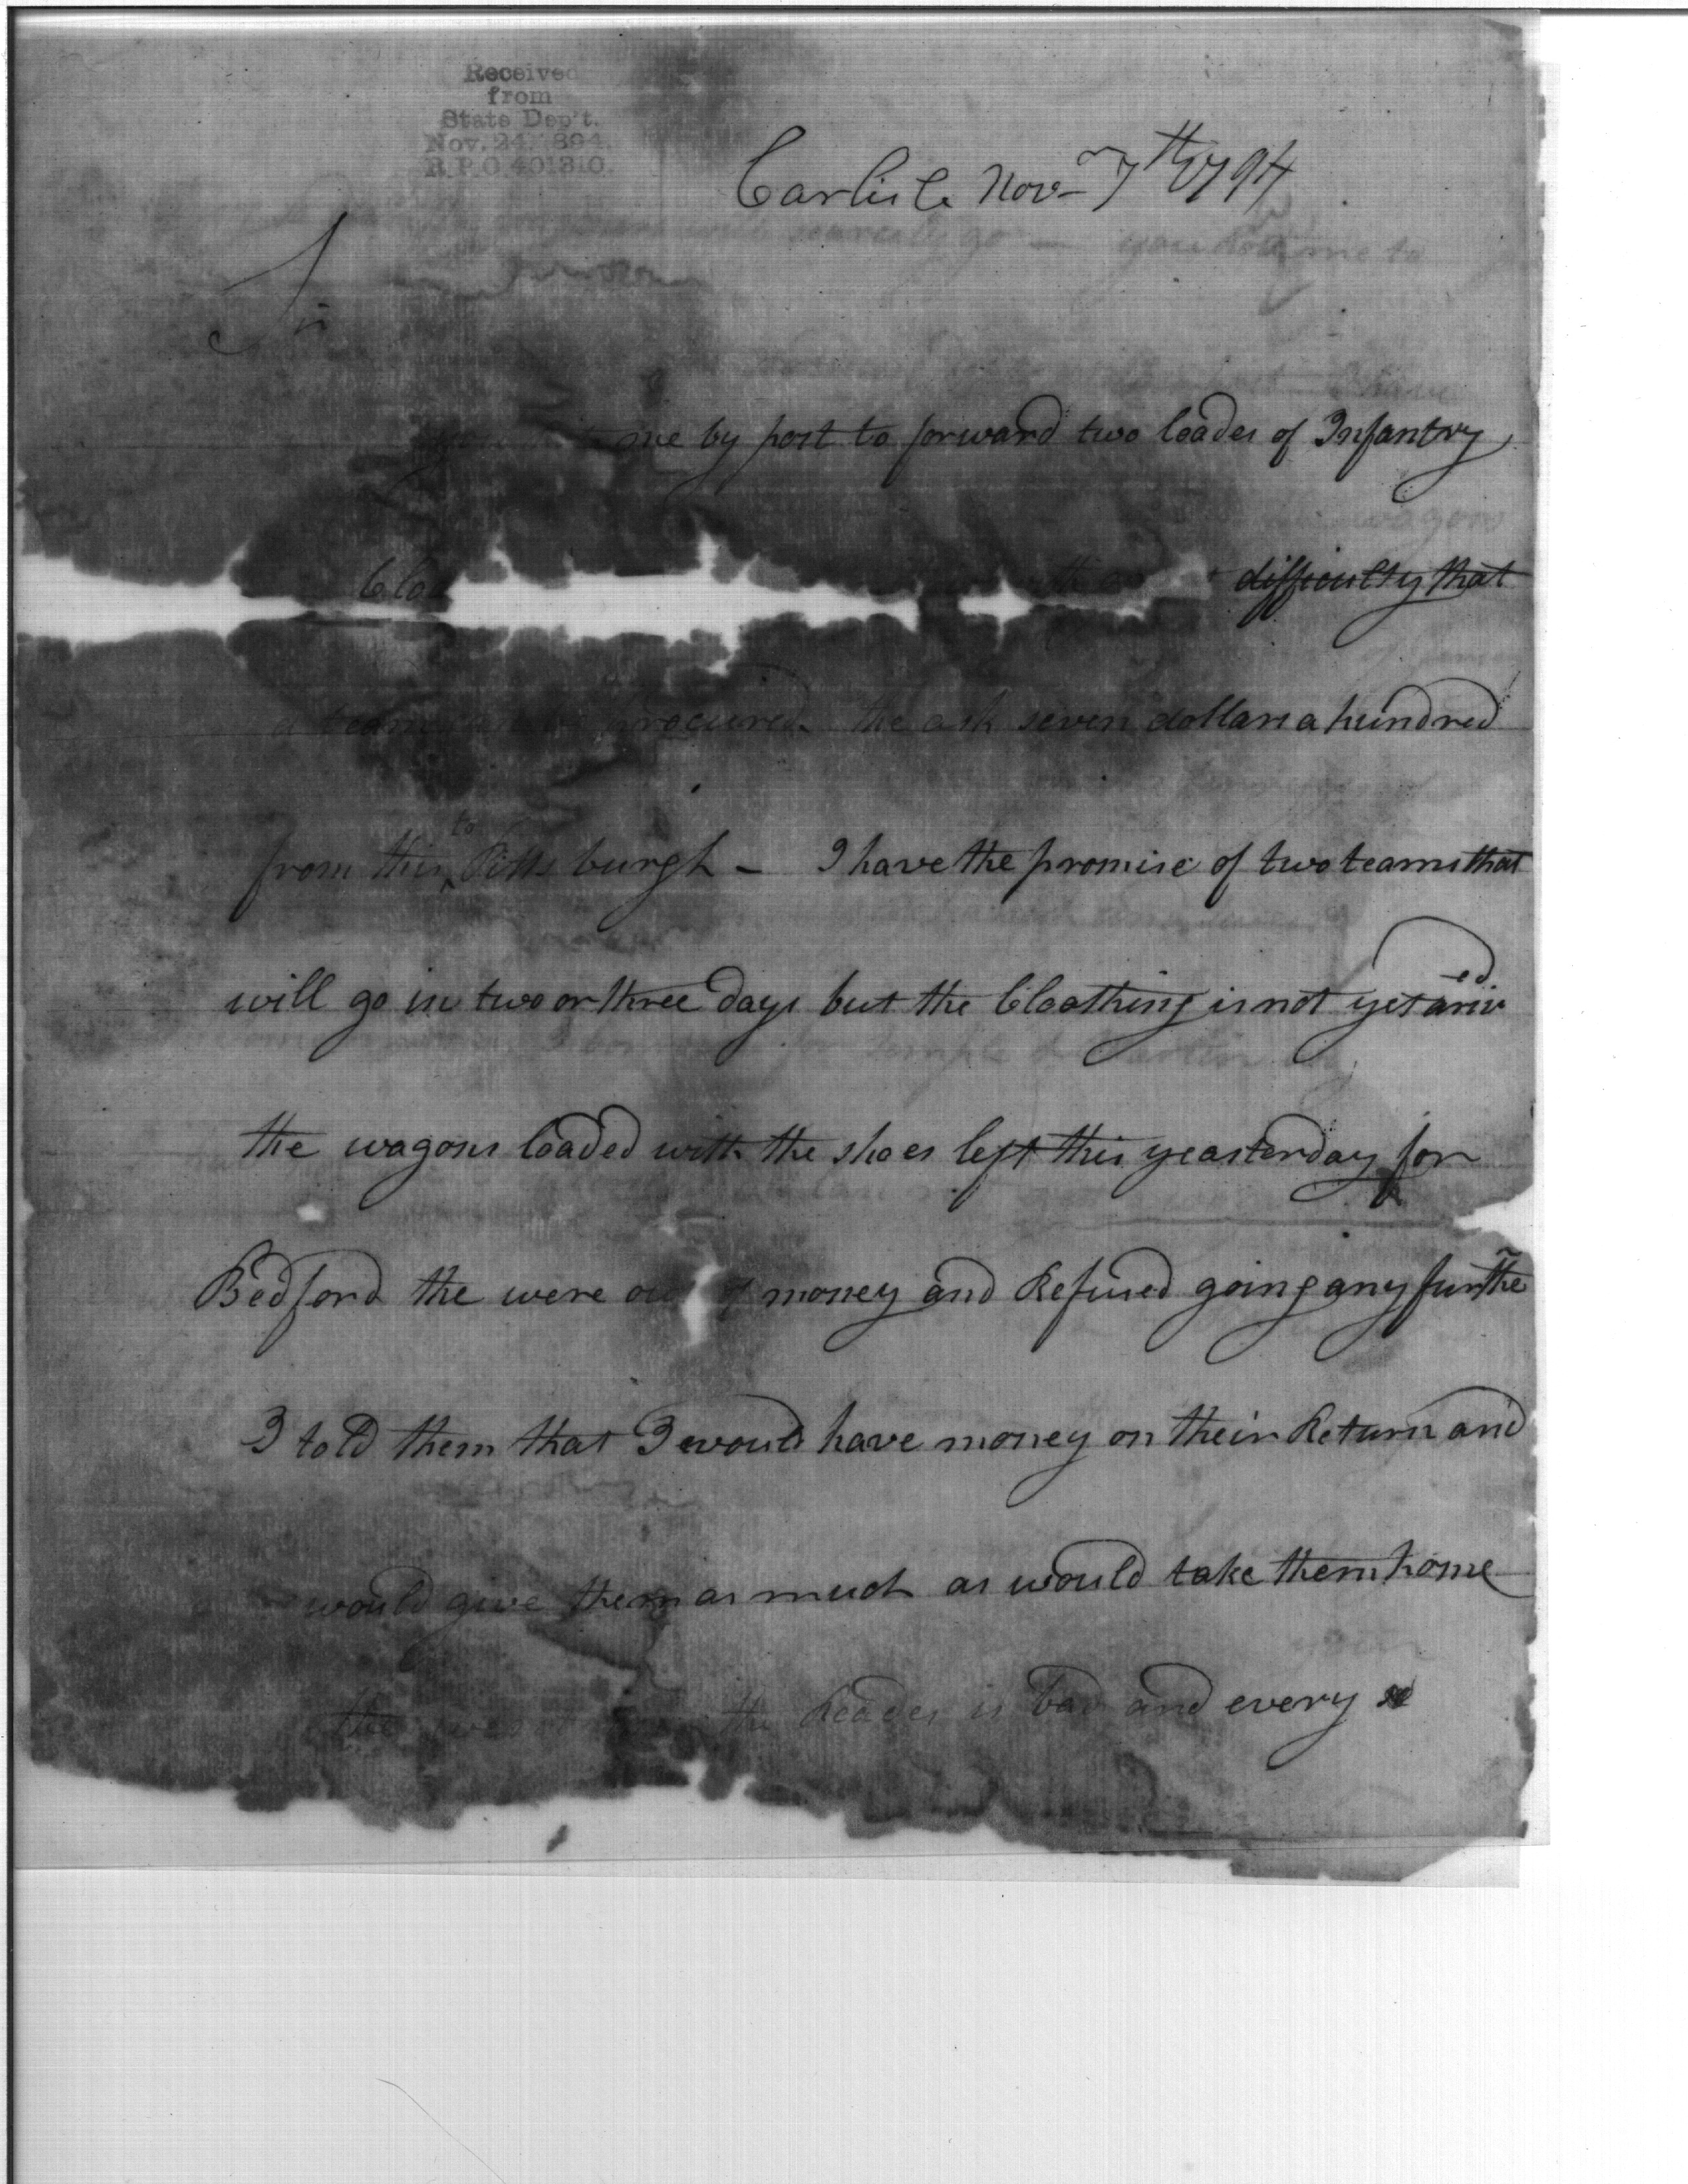 Received
from
State Dep't.
Nov. 24. 1894.
R.P.O. 401310.
Carlisle Novr 7th 1794
Sir
me by post to forward two loades of Infantry
Cloa difficulty that
a team procured. the ask seven dollars a hundred
from this to Pittsburgh – I have the promise of two teams that
will go in two or three days but the Cloathing is not yet arived
the wagons loaded with the shoes left this yeasterday for
Bedford the were ou of money and Refused going any further
I told them that I would have money on their Return and
would give them as much as would take them home
the the Roades is bad and every